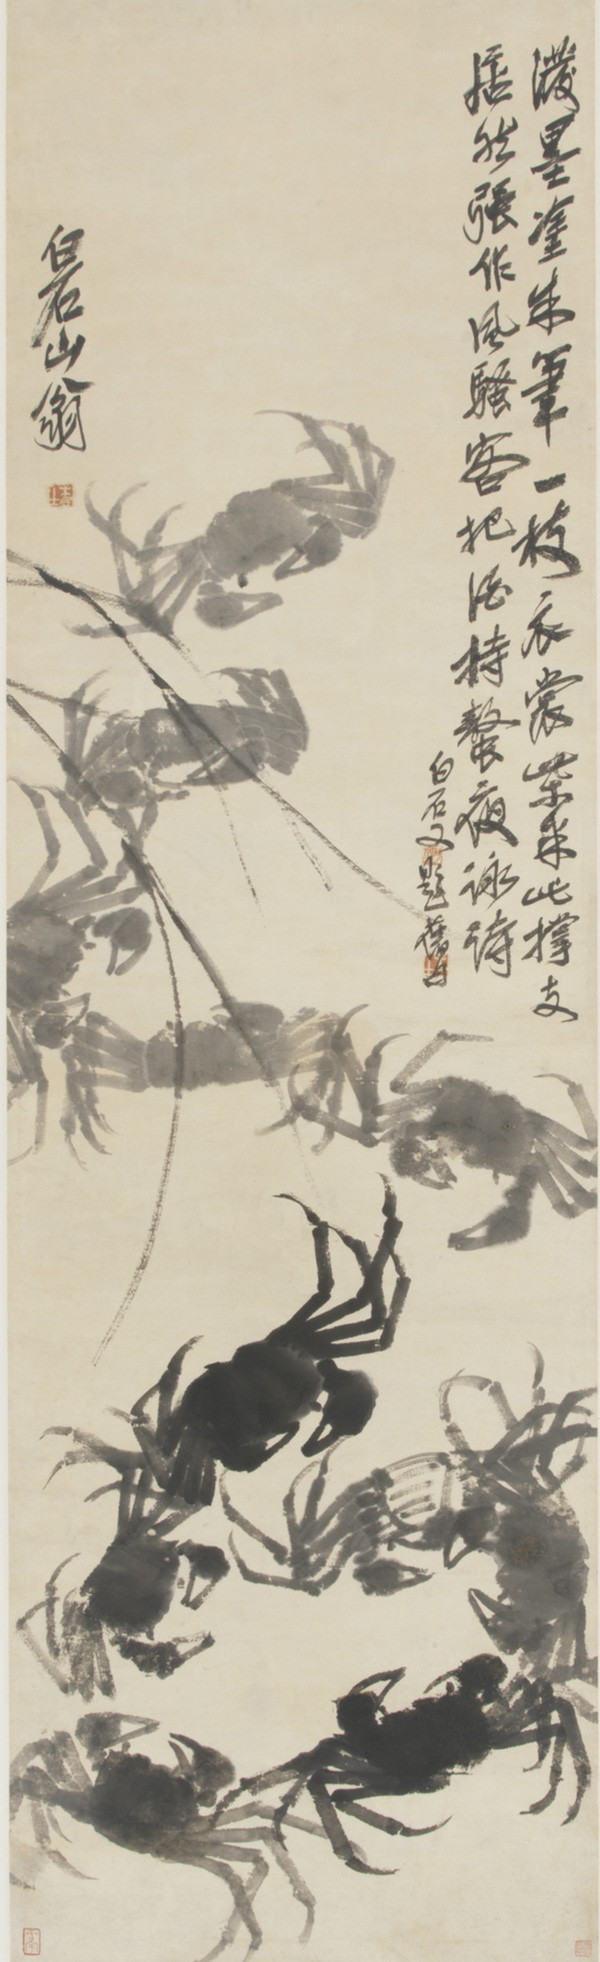 潑墨塗朱筆一枝衣裳柴米此撐支
居然張作風騷客把酒持螯夜詠詩
白石又題舊句
白石山翁